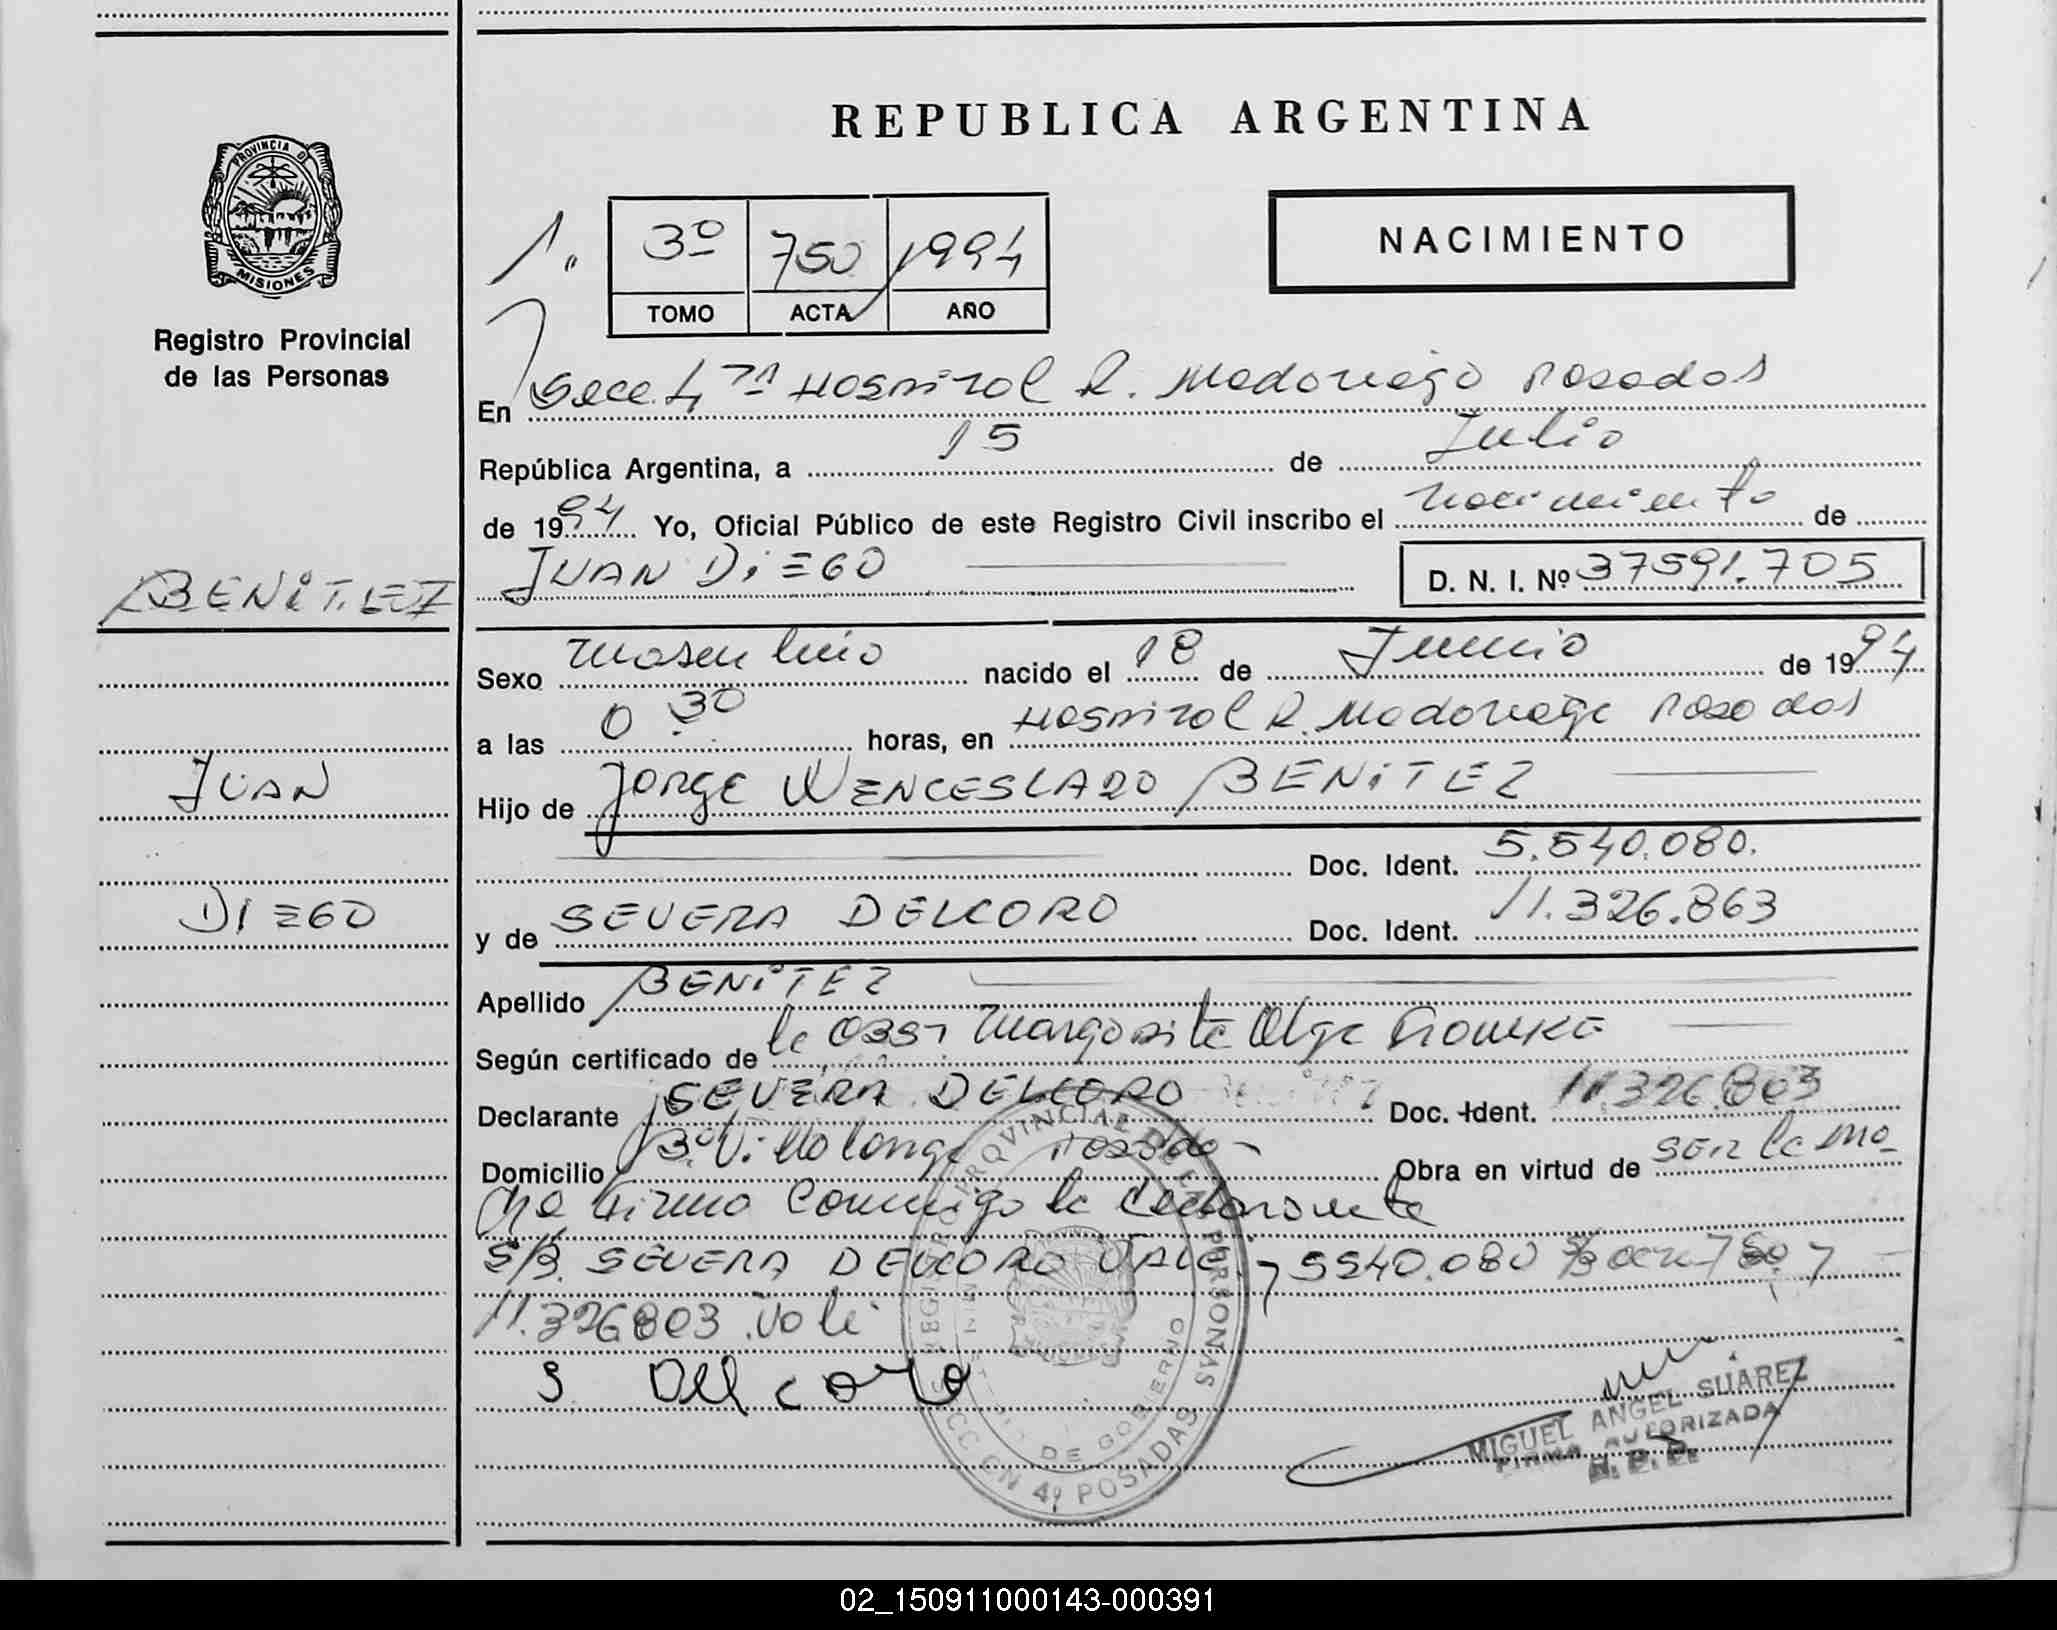 REPUBLICA ARGENTINA
PROVINCIA DE
MISIONES
Registro Provincial
de las Personas
1.
3º 750 1994
TOMO ACTA AÑO
NACIMIENTO
En Secc. 4ta Hospital R. Madariaga Posadas
República Argentina, a 15 de Julio
de 1994 Yo, Oficial Público de este Registro Civil inscribo el nacimiento de
BENiTEZ
JUAN DiEGO D. N. I. Nº 37591.705
Sexo masculino nacido el 18 de Junio de 1994
a las 0 30 horas, en Hospital R. Madariaga Posadas
JUAN
Hijo de Jorge WENCESLADO BENiTEZ
Doc. Ident. 5.540.080.
DIEGO
y de SEVERA DELCORO Doc. Ident. 11.326.863
Apellido BENiTEZ
Según certificado de la Obst Margarita Olga
Declarante SEVERA DELCORO Doc. Ident. 11.326.803
Domicilio Bº Villalonga Posadas Obra en virtud de ser la ma
dre Firma Conmigo la declarante
S/B. SEVERA DELCORO VALE. 5540.080 S/B acta 750
11.326803 . Vale
S. Delcoro
REGISTRO PROVINCIAL DE LAS PERSONAS
DE GOBIERNO
SECCION 4º POSADAS
MIGUEL ANGEL SUAREZ
FIRMA AUTORIZADA
R. P. P.
02_150911000143-000391